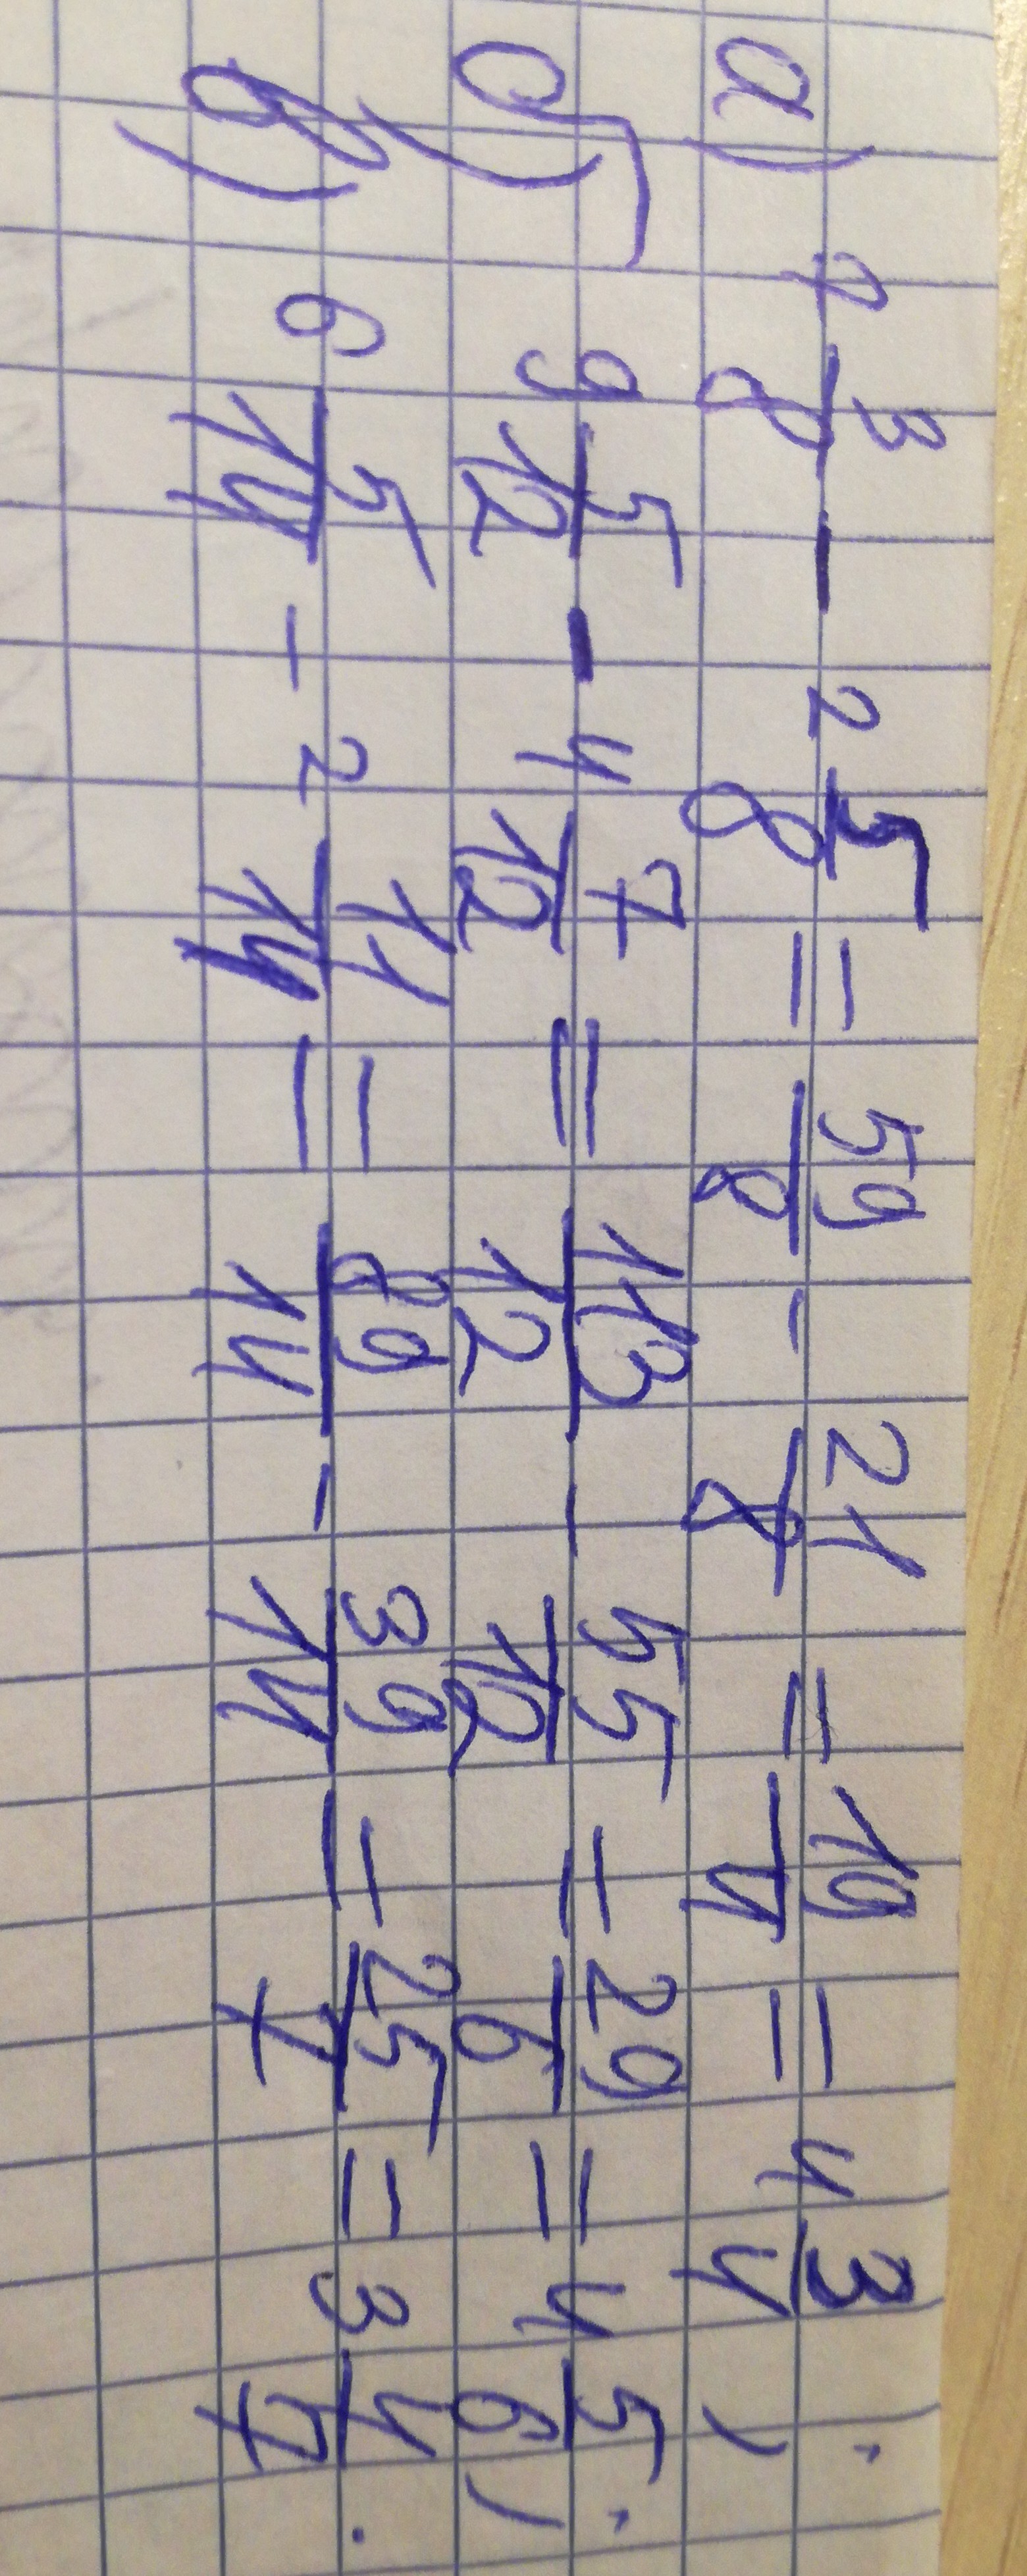 а) 7 3/8 - 2 5/8 = 59/8 - 21/8 = 19/4 = 4 3/4;
б) 9 5/12 - 4 7/12 = 113/12 - 55/12 = 29/6 = 4 5/6;
в) 6 5/14 - 2 11/14 = 89/14 - 39/14 = 25/7 = 3 4/7.